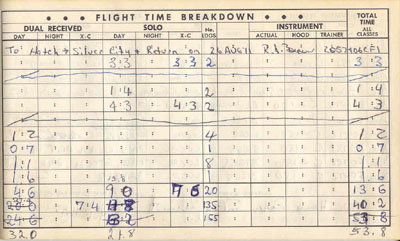 • • • FLIGHT TIME BREAKDOWN • • •
DUAL RECEIVED SOLO No. LDGS INSTRUMENT TOTAL TIME ALL CLASSES
DAY NIGHT X-C DAY NIGHT X-C ACTUAL HOOD TRAINER
To Silver City & Return on 26 AUG 71
3:3 3:3 2 3:3
1:4 2 1:4
4:3 4:3 2 4:3
1:2 4 1:2
0:7 1 0:7
1:1 8 1:1
1:6 1 1:6
4:6 9 0 7 6 20 13:6
7:4 135 40 2
24:6 155 53:8
32 0 21.8 53.8